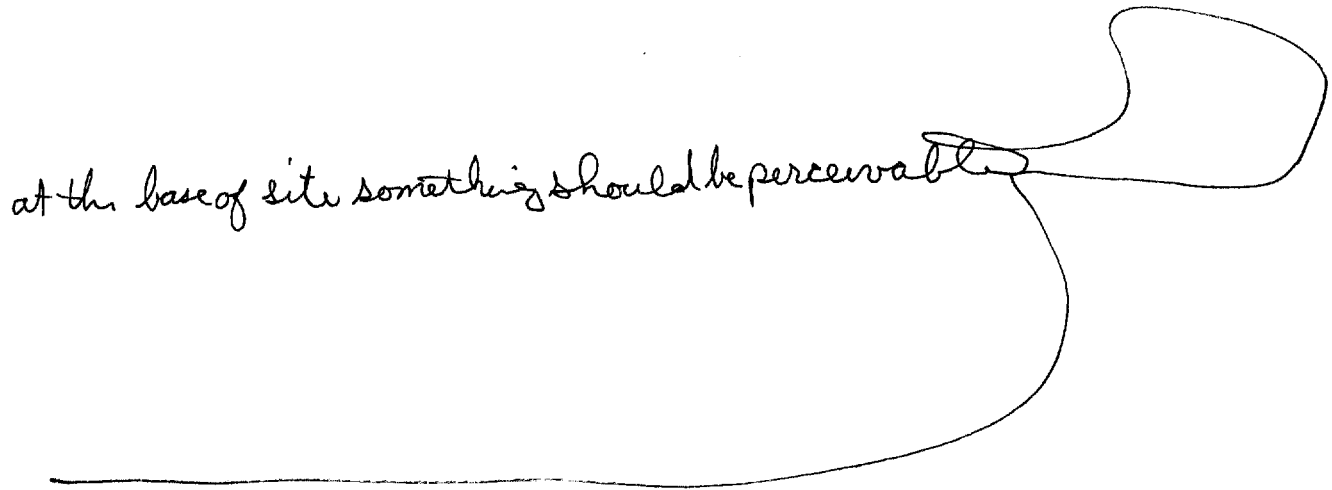 at the base of site something should be perceivable